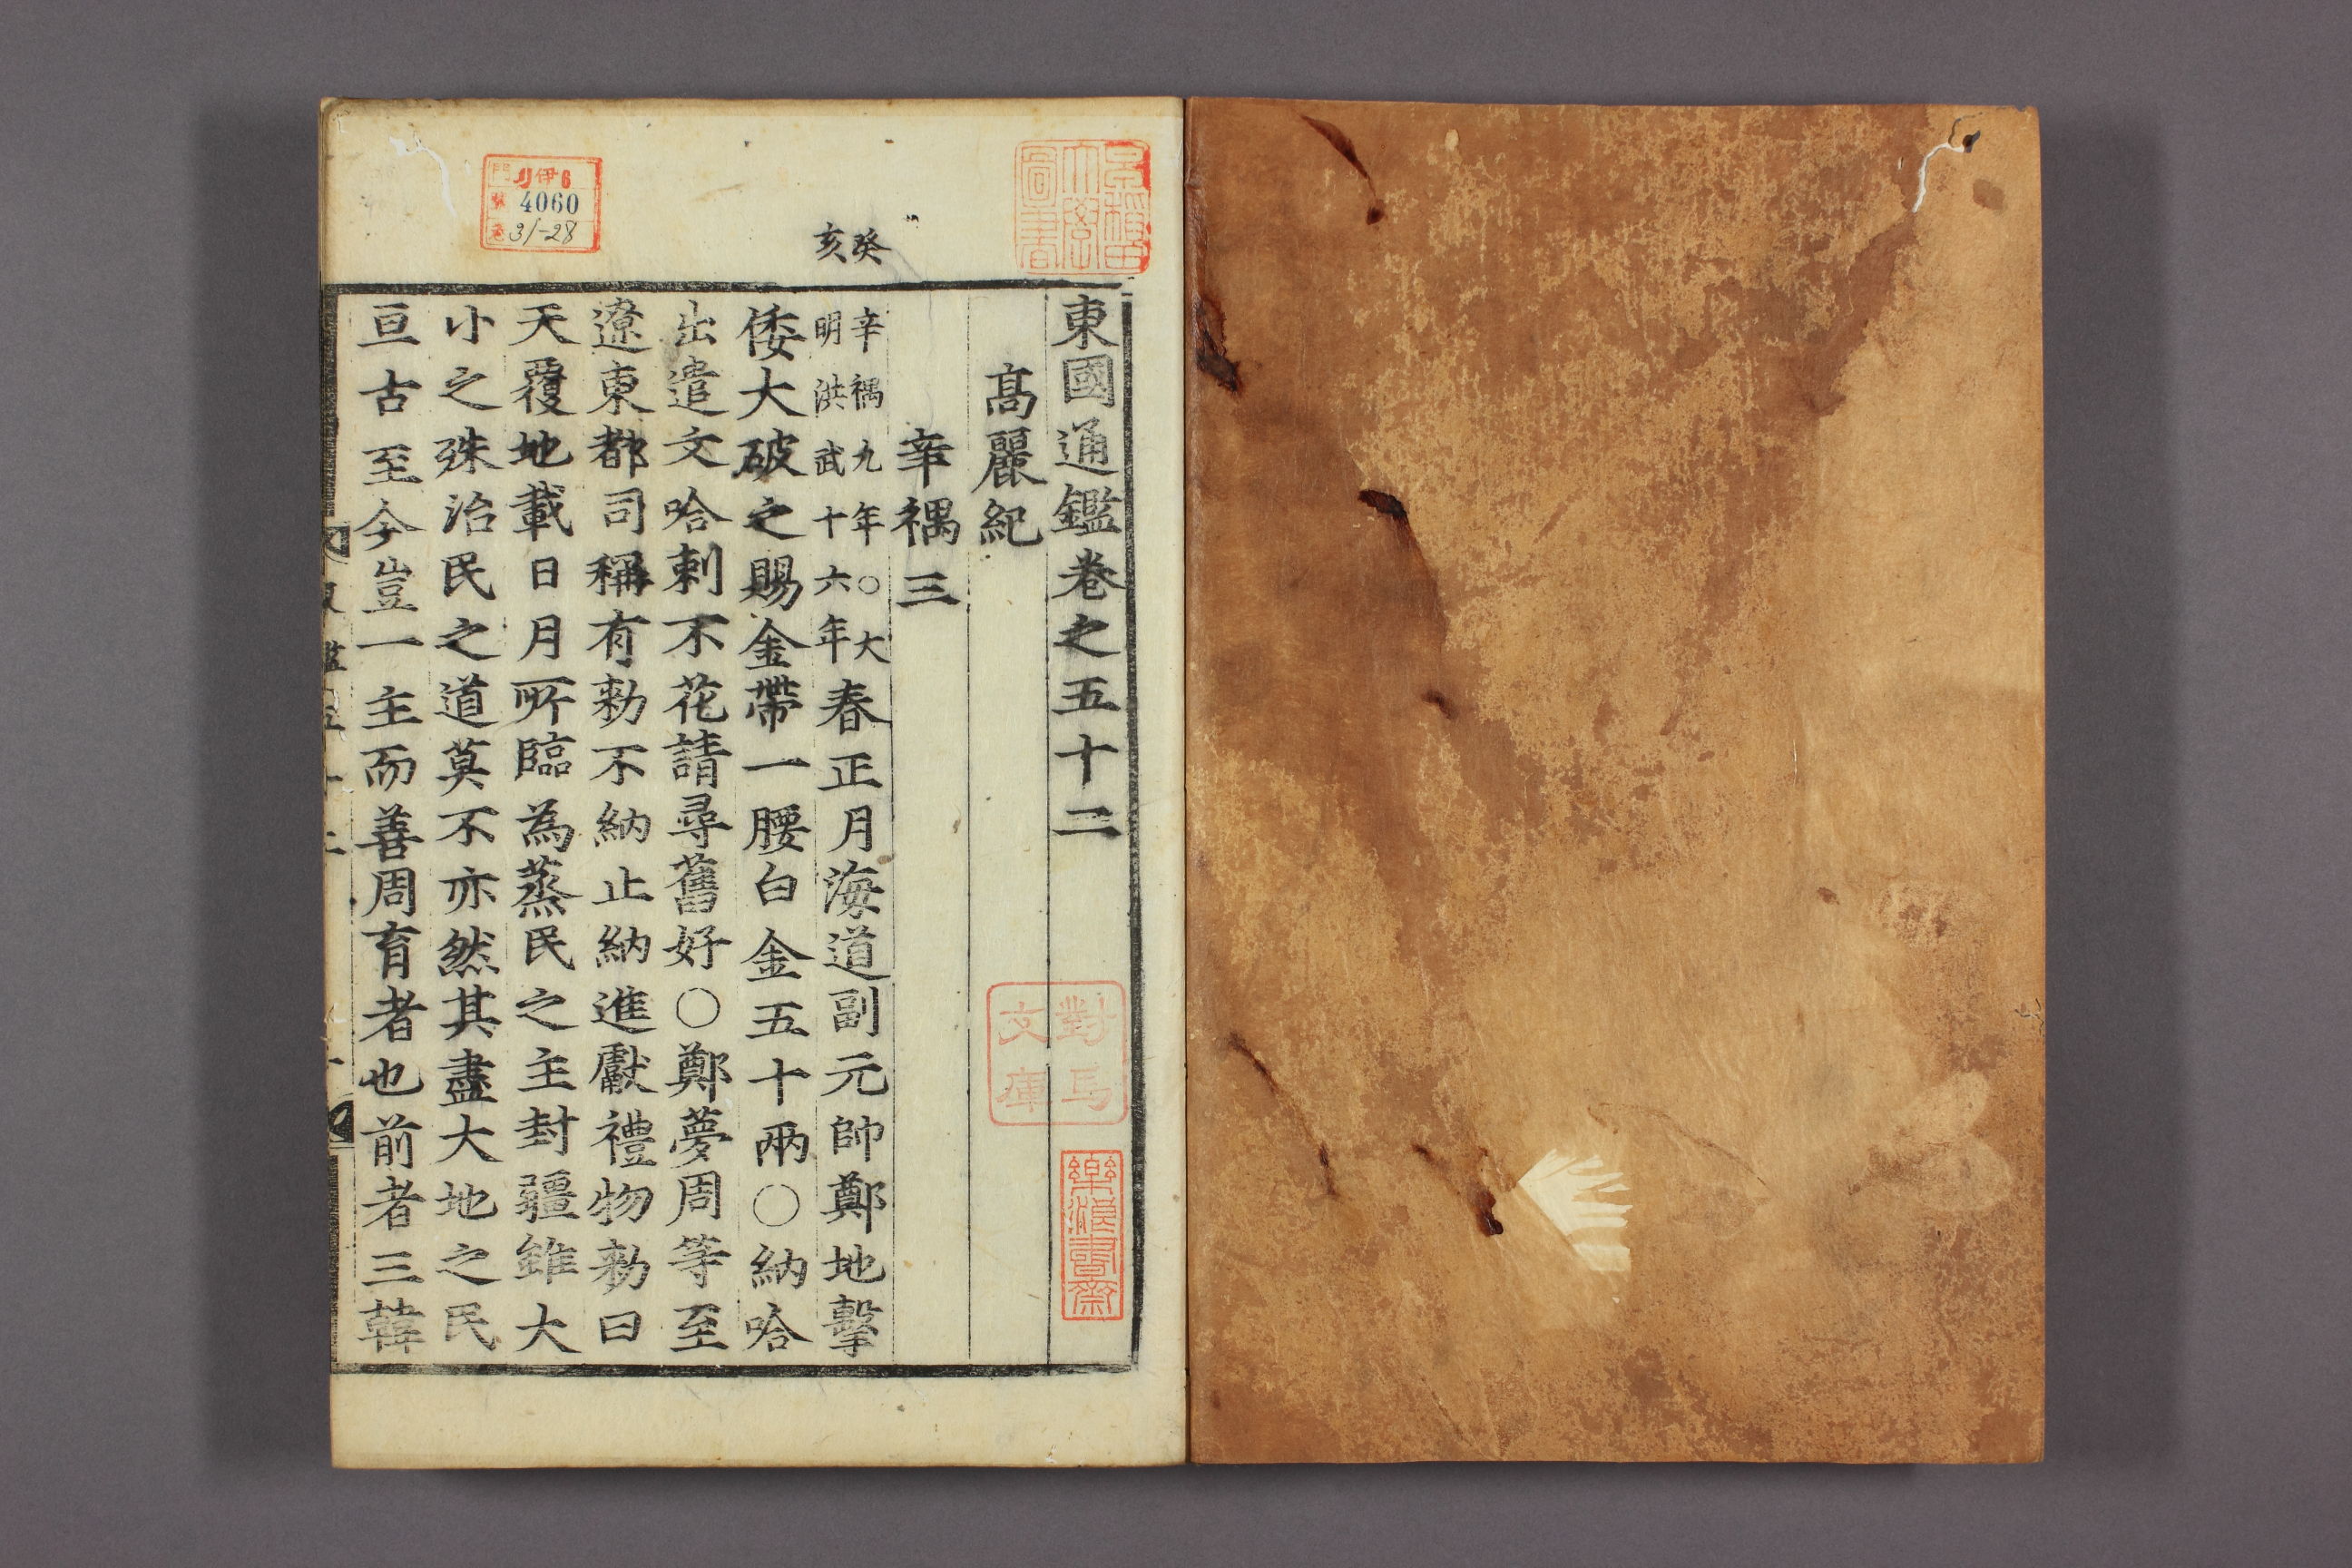 東國通鑑卷之五十二
高麗紀
辛禑三
癸亥
辛禑九年○大
明洪武十六年
春正月海道副元帥鄭地擊
倭大破之賜金帶一腰白金五十兩○納哈
出遣文哈剌不花請尋舊好○鄭夢周等至
遼東都司稱有勑不納止納進獻禮物勑曰
天覆地載日月所臨為蒸民之主封疆雖大
小之殊治民之道莫不亦然其盡大地之民
亘古至今豈一主而善周育者也前者三韓
早稲田
大學
圖書
對馬
文庫
樂浪書齋
門 リ伊6
號 4060
卷 31-28